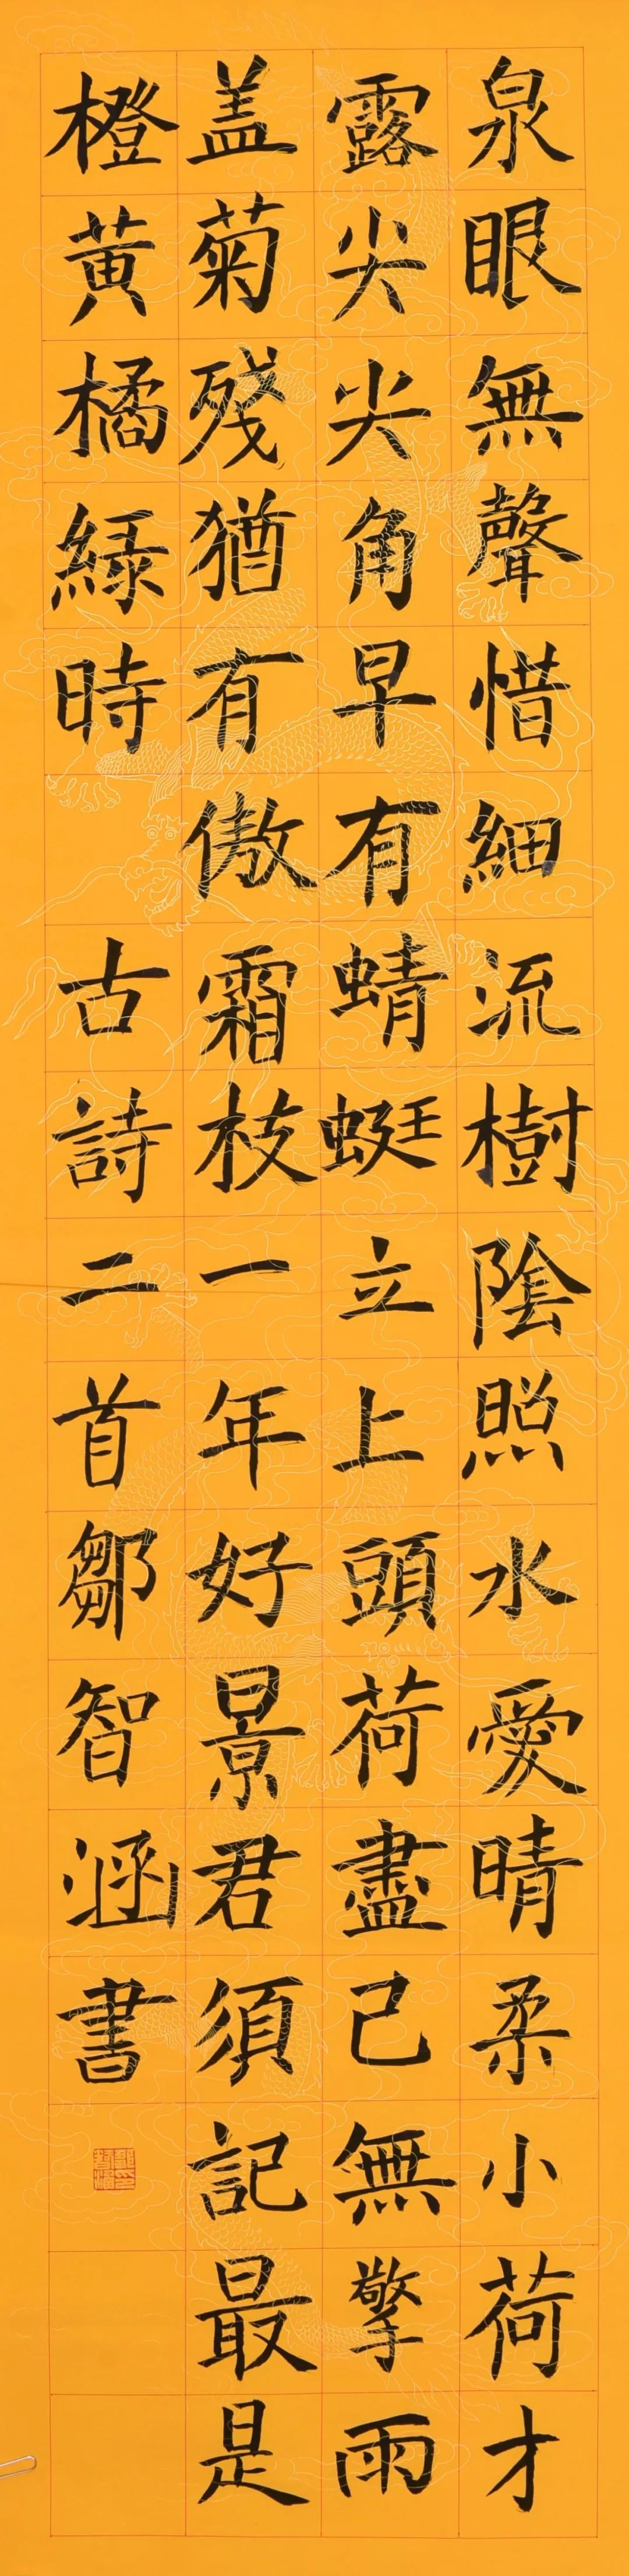 泉眼無聲惜細流樹陰照水愛晴柔小荷才
露尖尖角早有蜻蜓立上頭荷盡已無擎雨
盖菊殘猶有傲霜枝一年好景君須記最是
橙黄橘緑時 古詩二首鄒智涵書